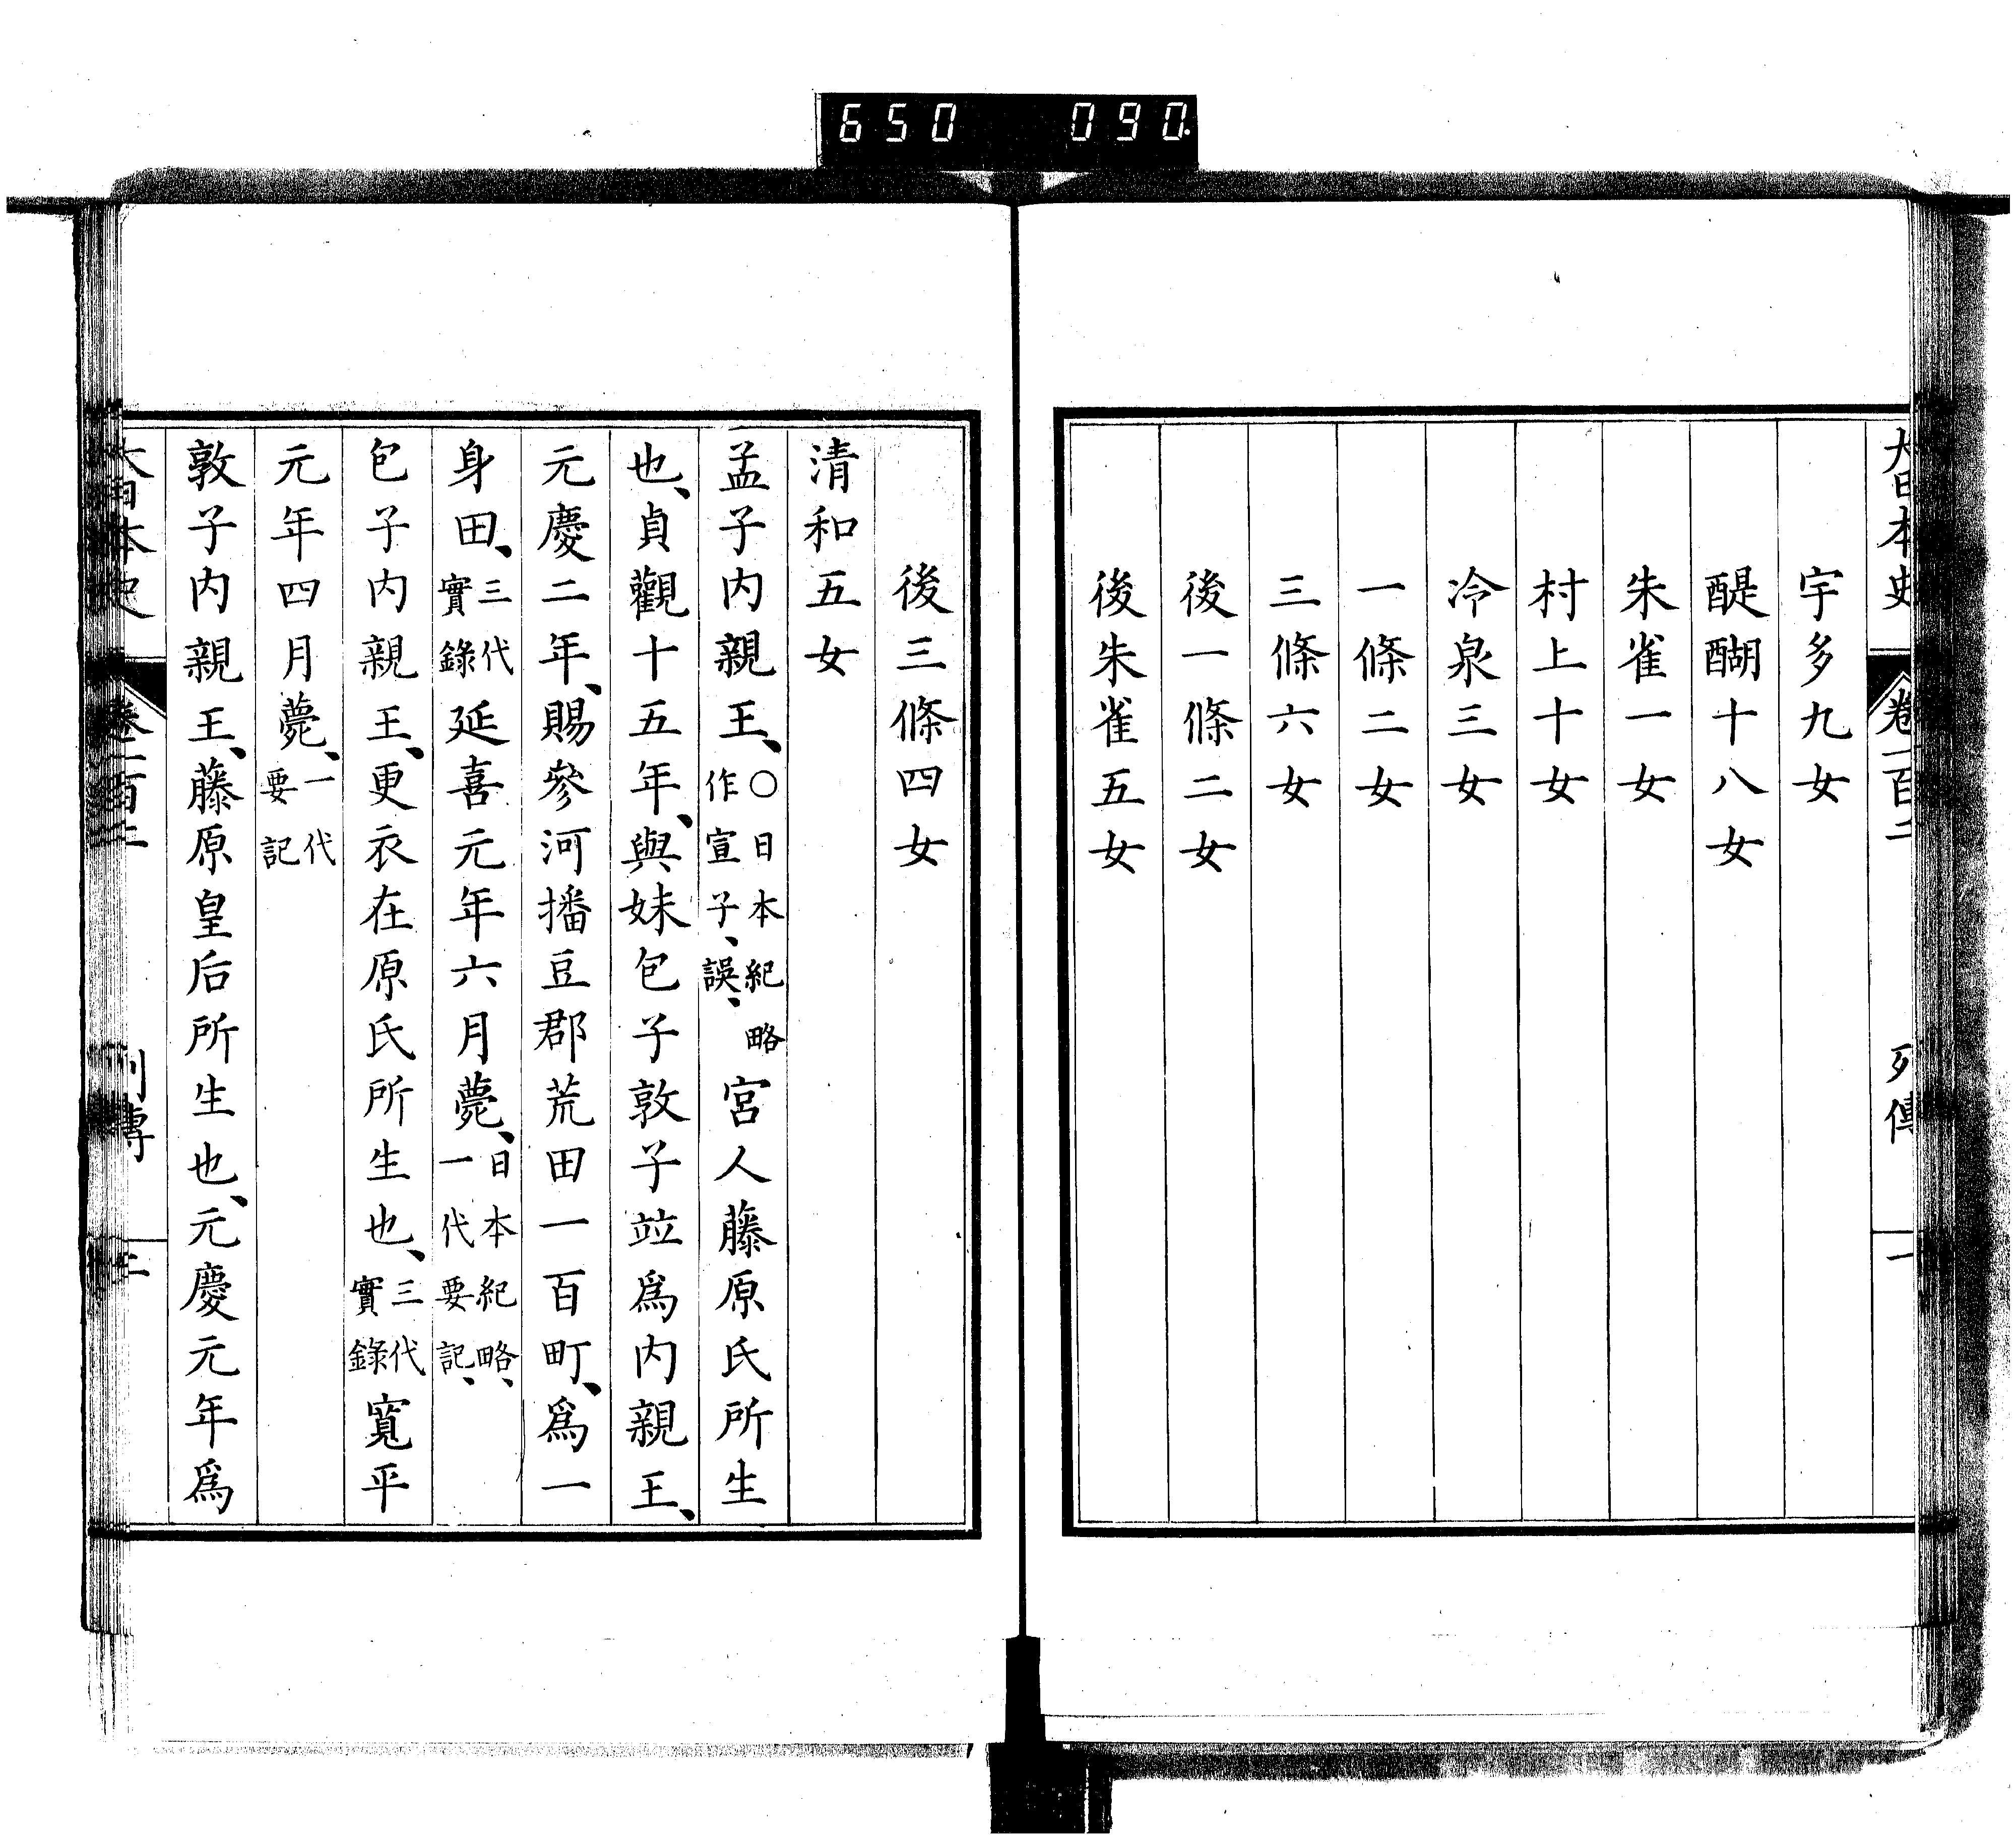 650 090
大日本史 卷一百二 列傳 一
宇多九女
醍醐十八女
朱雀一女
村上十女
冷泉三女
一條二女
三條六女
後一條二女
後朱雀五女
後三條四女
清和五女
孟子内親王、○日本紀略作宣子、誤、宮人藤原氏所生
也、貞觀十五年、與妹包子敦子竝爲内親王、
元慶二年、賜參河播豆郡荒田一百町、爲一
身田、三代實錄延喜元年六月薨、日本紀略、一代要記、
包子内親王、更衣在原氏所生也、三代實錄寬平
元年四月薨、一代要記
敦子内親王、藤原皇后所生也、元慶元年爲
大日本史 卷一百二 列傳 二